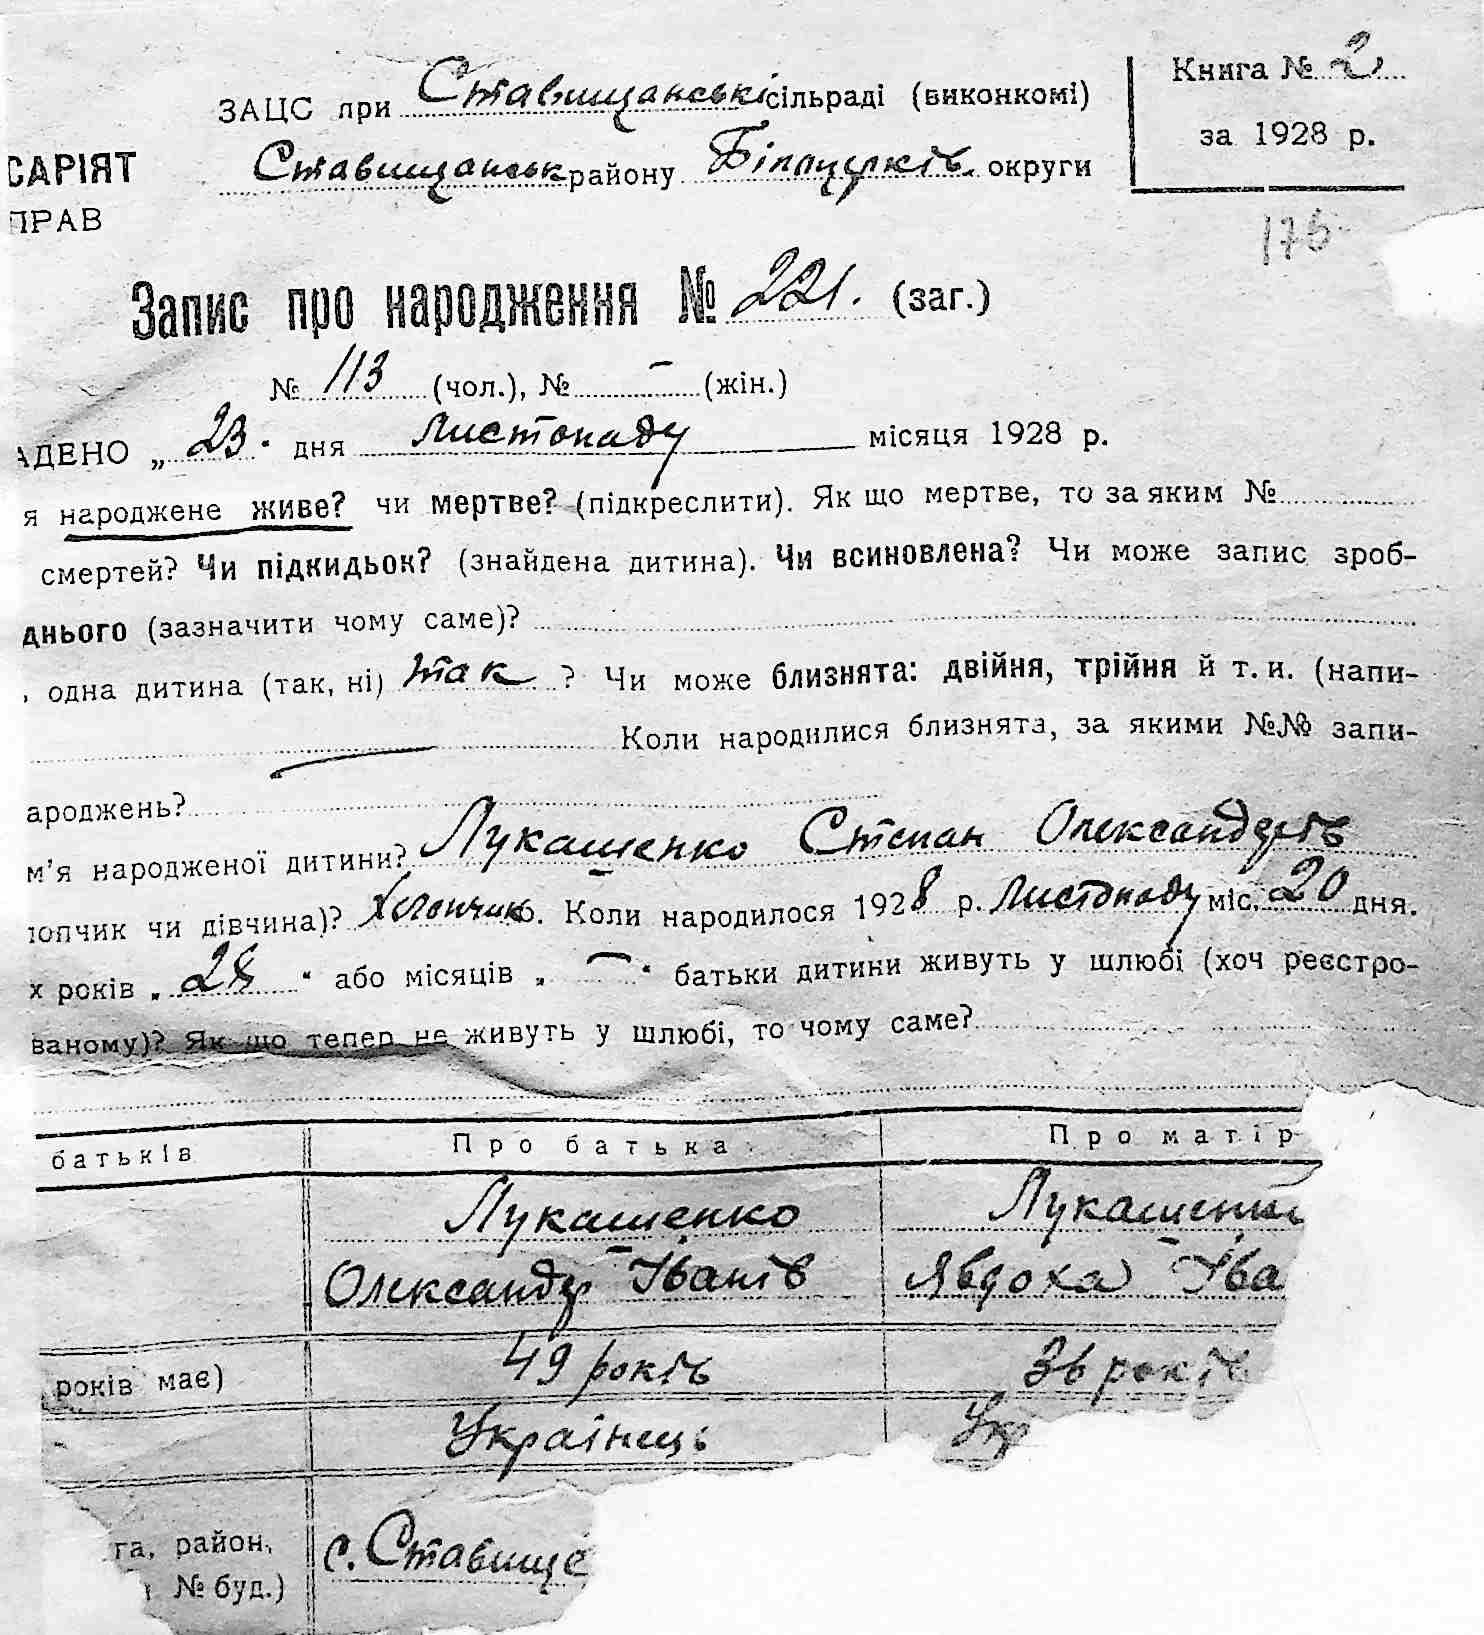 ЗАЦС при Ставищанські сільраді (виконкомі)
Книга № 2
Ставищанськ району Білоцерків. округи
за 1928 р.
САРІЯТ
ПРАВ
175
Запис про народження № 221. (заг.)
№ 113 (чол.), № – (жін.)
АДЕНО „ 23. дня Листопаду місяця 1928 р.
я народжене живе? чи мертве? (підкреслити). Як що мертве, то за яким №
смертей? Чи підкидьок? (знайдена дитина). Чи всиновлена? Чи може запис зроб-
днього (зазначити чому саме)?
, одна дитина (так, ні) так ? Чи може близнята: двійня, трійня й т. и. (напи-
Коли народилися близнята, за якими №№ запи-
ароджень?
м'я народженої дитини? Лукашенко Степан Олександрів
юпчик чи дівчина)? Хлопчик. Коли народилося 1928 р. Листопаду міс. 20 дня.
х років „ 28 " або місяців „ – " батьки дитини живуть у шлюбі (хоч реєстро-
ваному)? Як що тепер не живуть у шлюбі, то чому саме?
батьків Про батька Про матір
Лукашенко Лукашенк
Олександр Іванів Явдоха Іва
років має) 49 років 36 років
Українець Укр
га, район, с. Ставище
№ буд.)